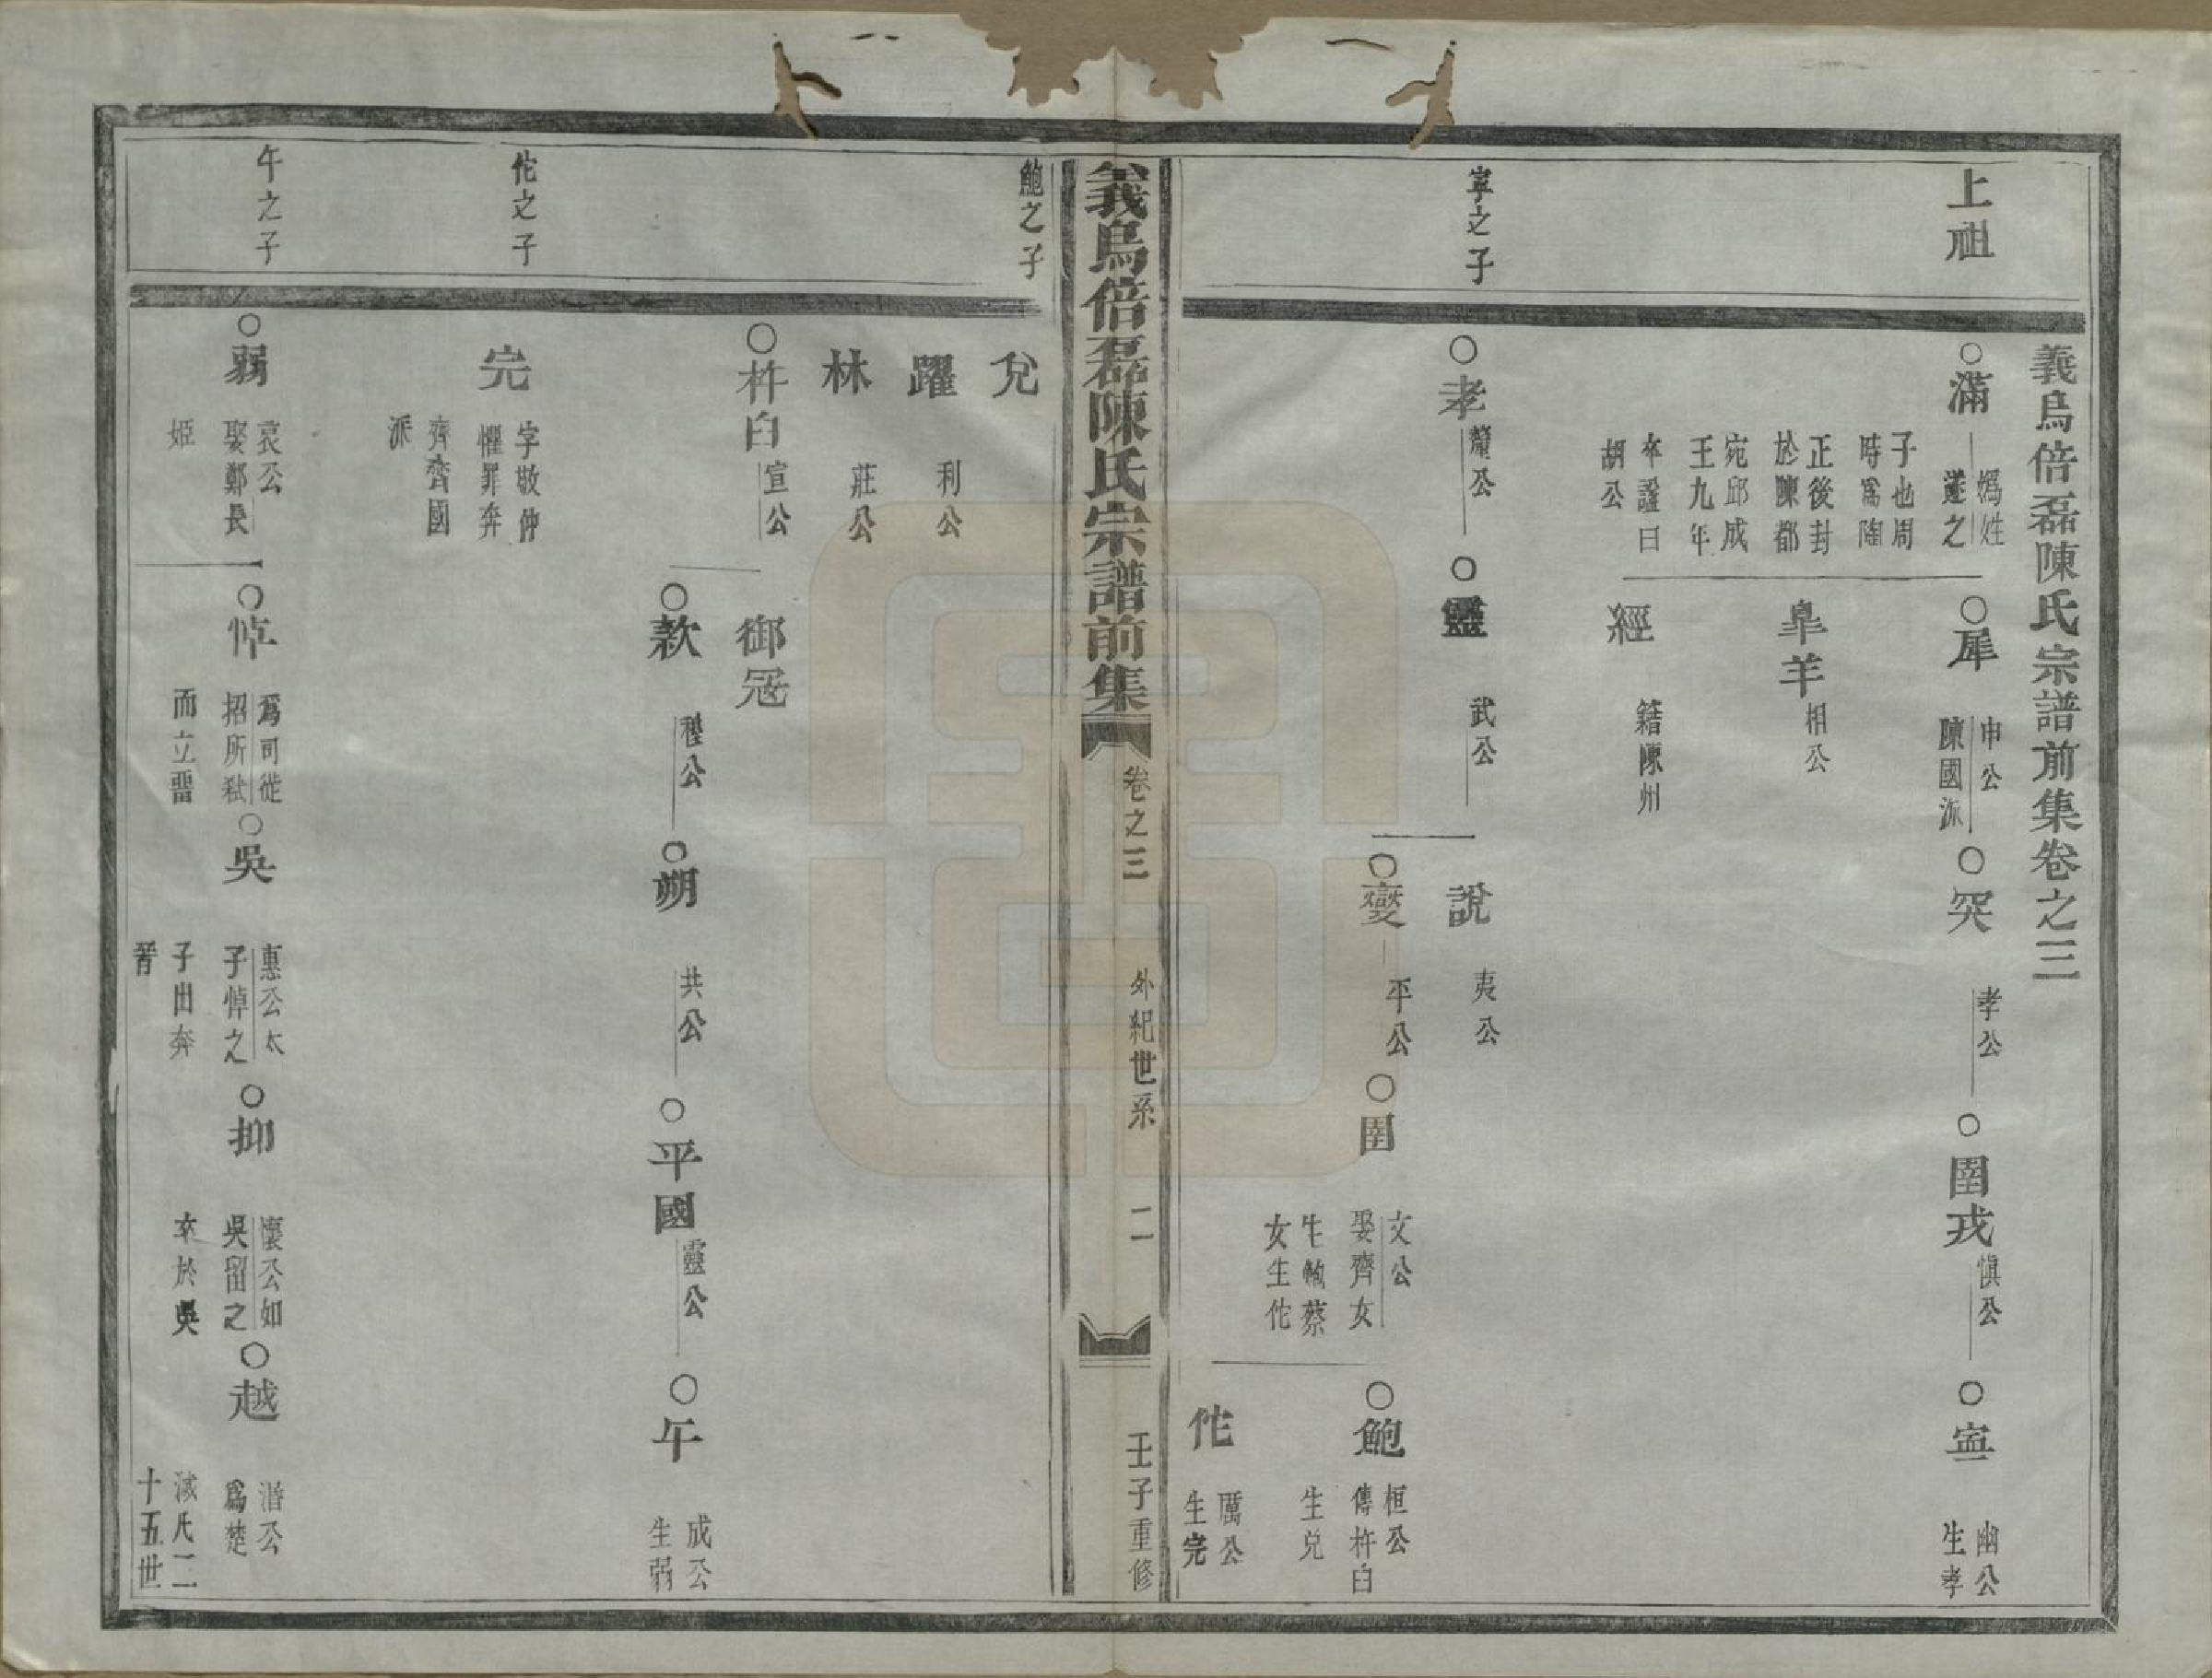 義烏倍磊陳氏宗譜前集卷之三
上祖
○滿
媯姓
遂之
子也周
時爲陶
正後封
於陳都
宛邱成
王九年
卒諡曰
胡公
○犀
申公
陳國派
○突
孝公
○圉戎
愼公
○寍
幽公
生孝
臯羊
相公
經
籍陳州
寍之子
○孝
釐公
○靈
武公
說
夷公
○變
平公
○圉
文公
娶齊女
生鮑蔡
女生佗
○鮑
桓公
傳杵臼
生兌
佗
厲公
生完
義烏倍磊陳氏宗譜前集
卷之三
外紀世系
二
壬子重修
鮑之子
兌
躍
利公
林
莊公
○杵臼
宣公
御冦
○款
穆公
○朔
共公
○平國
靈公
○午
成公
生弱
佗之子
完
字敬仲
懼罪奔
齊齊國
派
午之子
○弱
哀公
娶鄭長
姬
○悼
爲司徙
招所弒
而立畱
○吳
惠公太
子悼之
子出奔
晉
○抑
懷公如
吳留之
卒於吳
○越
湣公
爲楚
滅凡二
十五世